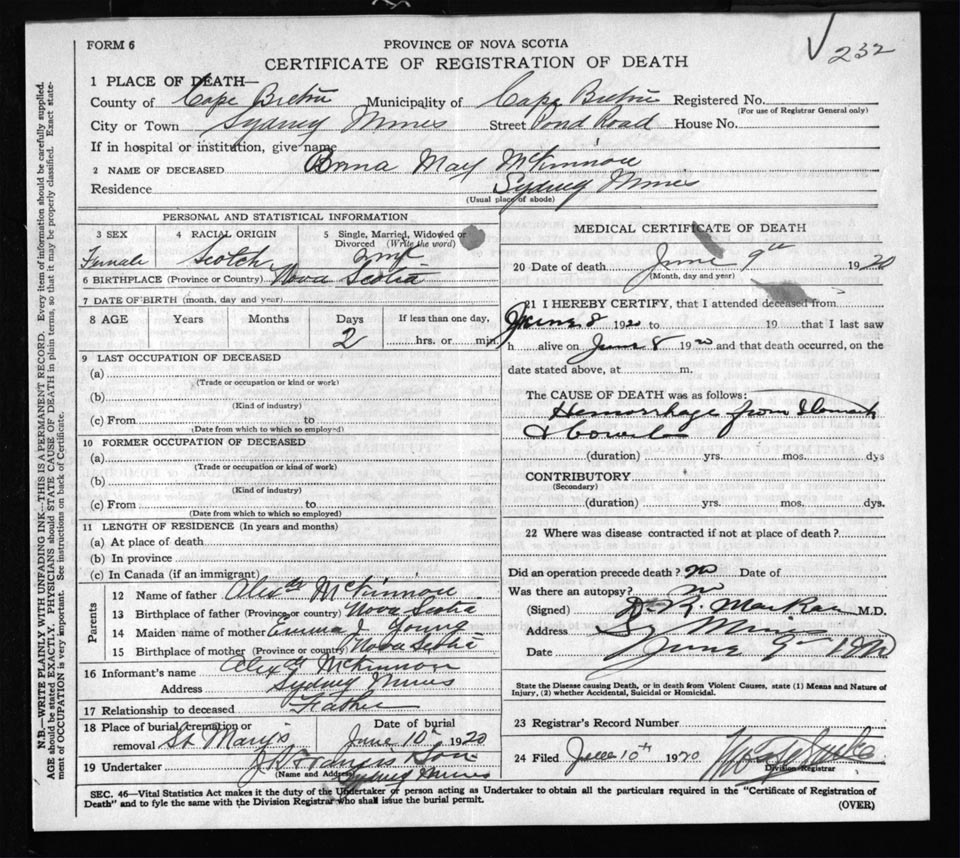 232
FORM 6
PROVINCE OF NOVA SCOTIA
CERTIFICATE OF REGISTRATION OF DEATH
N.B.—WRITE PLAINLY WITH UNFADING INK—THIS IS A PERMANENT RECORD. Every item of information should be carefully supplied.
AGE should be stated EXACTLY. PHYSICIANS should STATE CAUSE OF DEATH in plain terms, so that it may be properly classified. Exact state-
ment of OCCUPATION is very important. See instructions on back of Certificate.
1 PLACE OF DEATH—
County of Cape Breton Municipality of Cape Breton Registered No.
(For use of Registrar General only)
City or Town Sydney Mines Street Pond Road House No.
If in hospital or institution, give name
2 NAME OF DECEASED May McKinnon
Residence Sydney Mines
(Usual place of abode)
PERSONAL AND STATISTICAL INFORMATION
3 SEX 4 RACIAL ORIGIN 5 Single, Married, Widowed or Divorced (Write the word)
Female Scotch
6 BIRTHPLACE (Province or Country) Nova Scotia
7 DATE OF BIRTH (month, day and year)
8 AGE Years Months Days If less than one day,
2 hrs. or min.
9 LAST OCCUPATION OF DECEASED
(a)
(Trade or occupation or kind or work)
(b)
(Kind of industry)
(c) From to
(Date from which to which so employed)
10 FORMER OCCUPATION OF DECEASED
(a)
(Trade or occupation or kind of work)
(b)
(Kind of industry)
(c) From to
(Date from which to which so employed)
11 LENGTH OF RESIDENCE (In years and months)
(a) At place of death
(b) In province
(c) In Canada (if an immigrant)
Parents
12 Name of father Alexdr McKinnon
13 Birthplace of father (Province or country) Nova Scotia
14 Maiden name of mother Emma J Young
15 Birthplace of mother (Province or country) Nova Scotia
16 Informant's name Alexdr McKinnon
Address Sydney Mines
17 Relationship to deceased Father
18 Place of burial, cremation or Date of burial
removal St Mary's June 10th 1920
19 Undertaker Son
(Name and Address) Sydney Mines
MEDICAL CERTIFICATE OF DEATH
20 Date of death June 9th 1920
(Month, day and year)
21 I HEREBY CERTIFY, that I attended deceased from
June 8 1920 to 19 that I last saw
h alive on June 8 1920 and that death occurred, on the
date stated above, at m.
The CAUSE OF DEATH was as follows:
Hemorrhage from Stomach
& bowels
(duration) yrs. mos. dys
CONTRIBUTORY
(Secondary)
(duration) yrs. mos. dys.
22 Where was disease contracted if not at place of death?
Did an operation precede death? no Date of
Was there an autopsy? no
(Signed) D. R. MacRae M.D.
Address Sy Mines
Date June 9th 1920
State the Disease causing Death, or in death from Violent Causes, state (1) Means and Nature of
Injury, (2) whether Accidental, Suicidal or Homicidal.
23 Registrar's Record Number
24 Filed June 10th 1920
Division Registrar
SEC. 46—Vital Statistics Act makes it the duty of the Undertaker or person acting as Undertaker to obtain all the particulars required in the "Certificate of Registration of
Death" and to fyle the same with the Division Registrar who shall issue the burial permit.
(OVER)